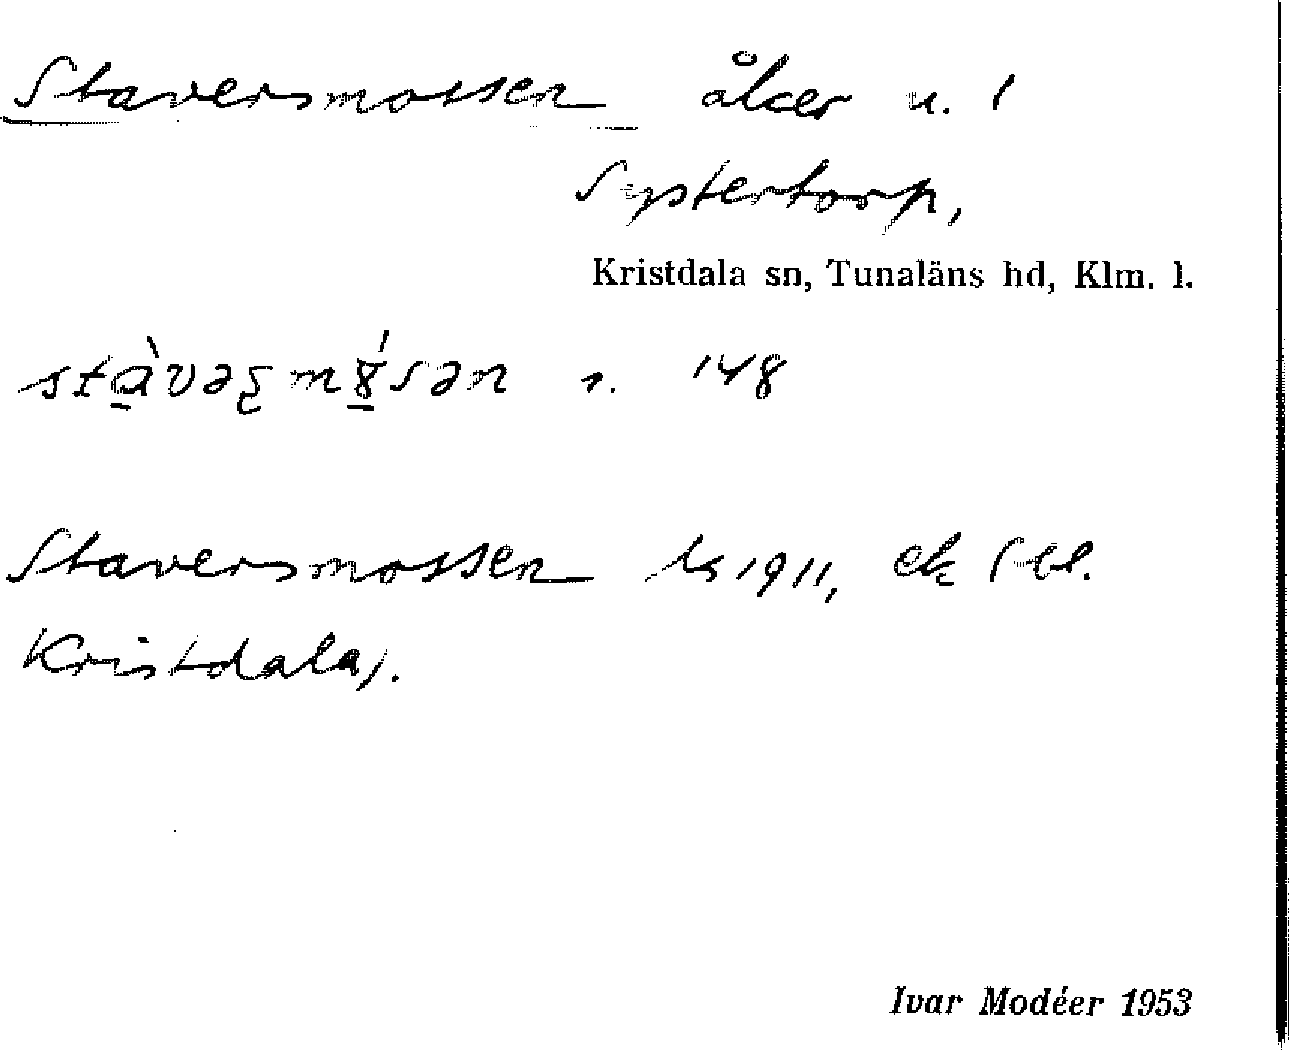 Staversmossen åker u. /
Systertorp,
Kristdala sn, Tunaläns hd, Klm. l.
s. 148
Staversmossen ls 1911, ek (-bl.
Kristdala).
Ivar Modéer 1953